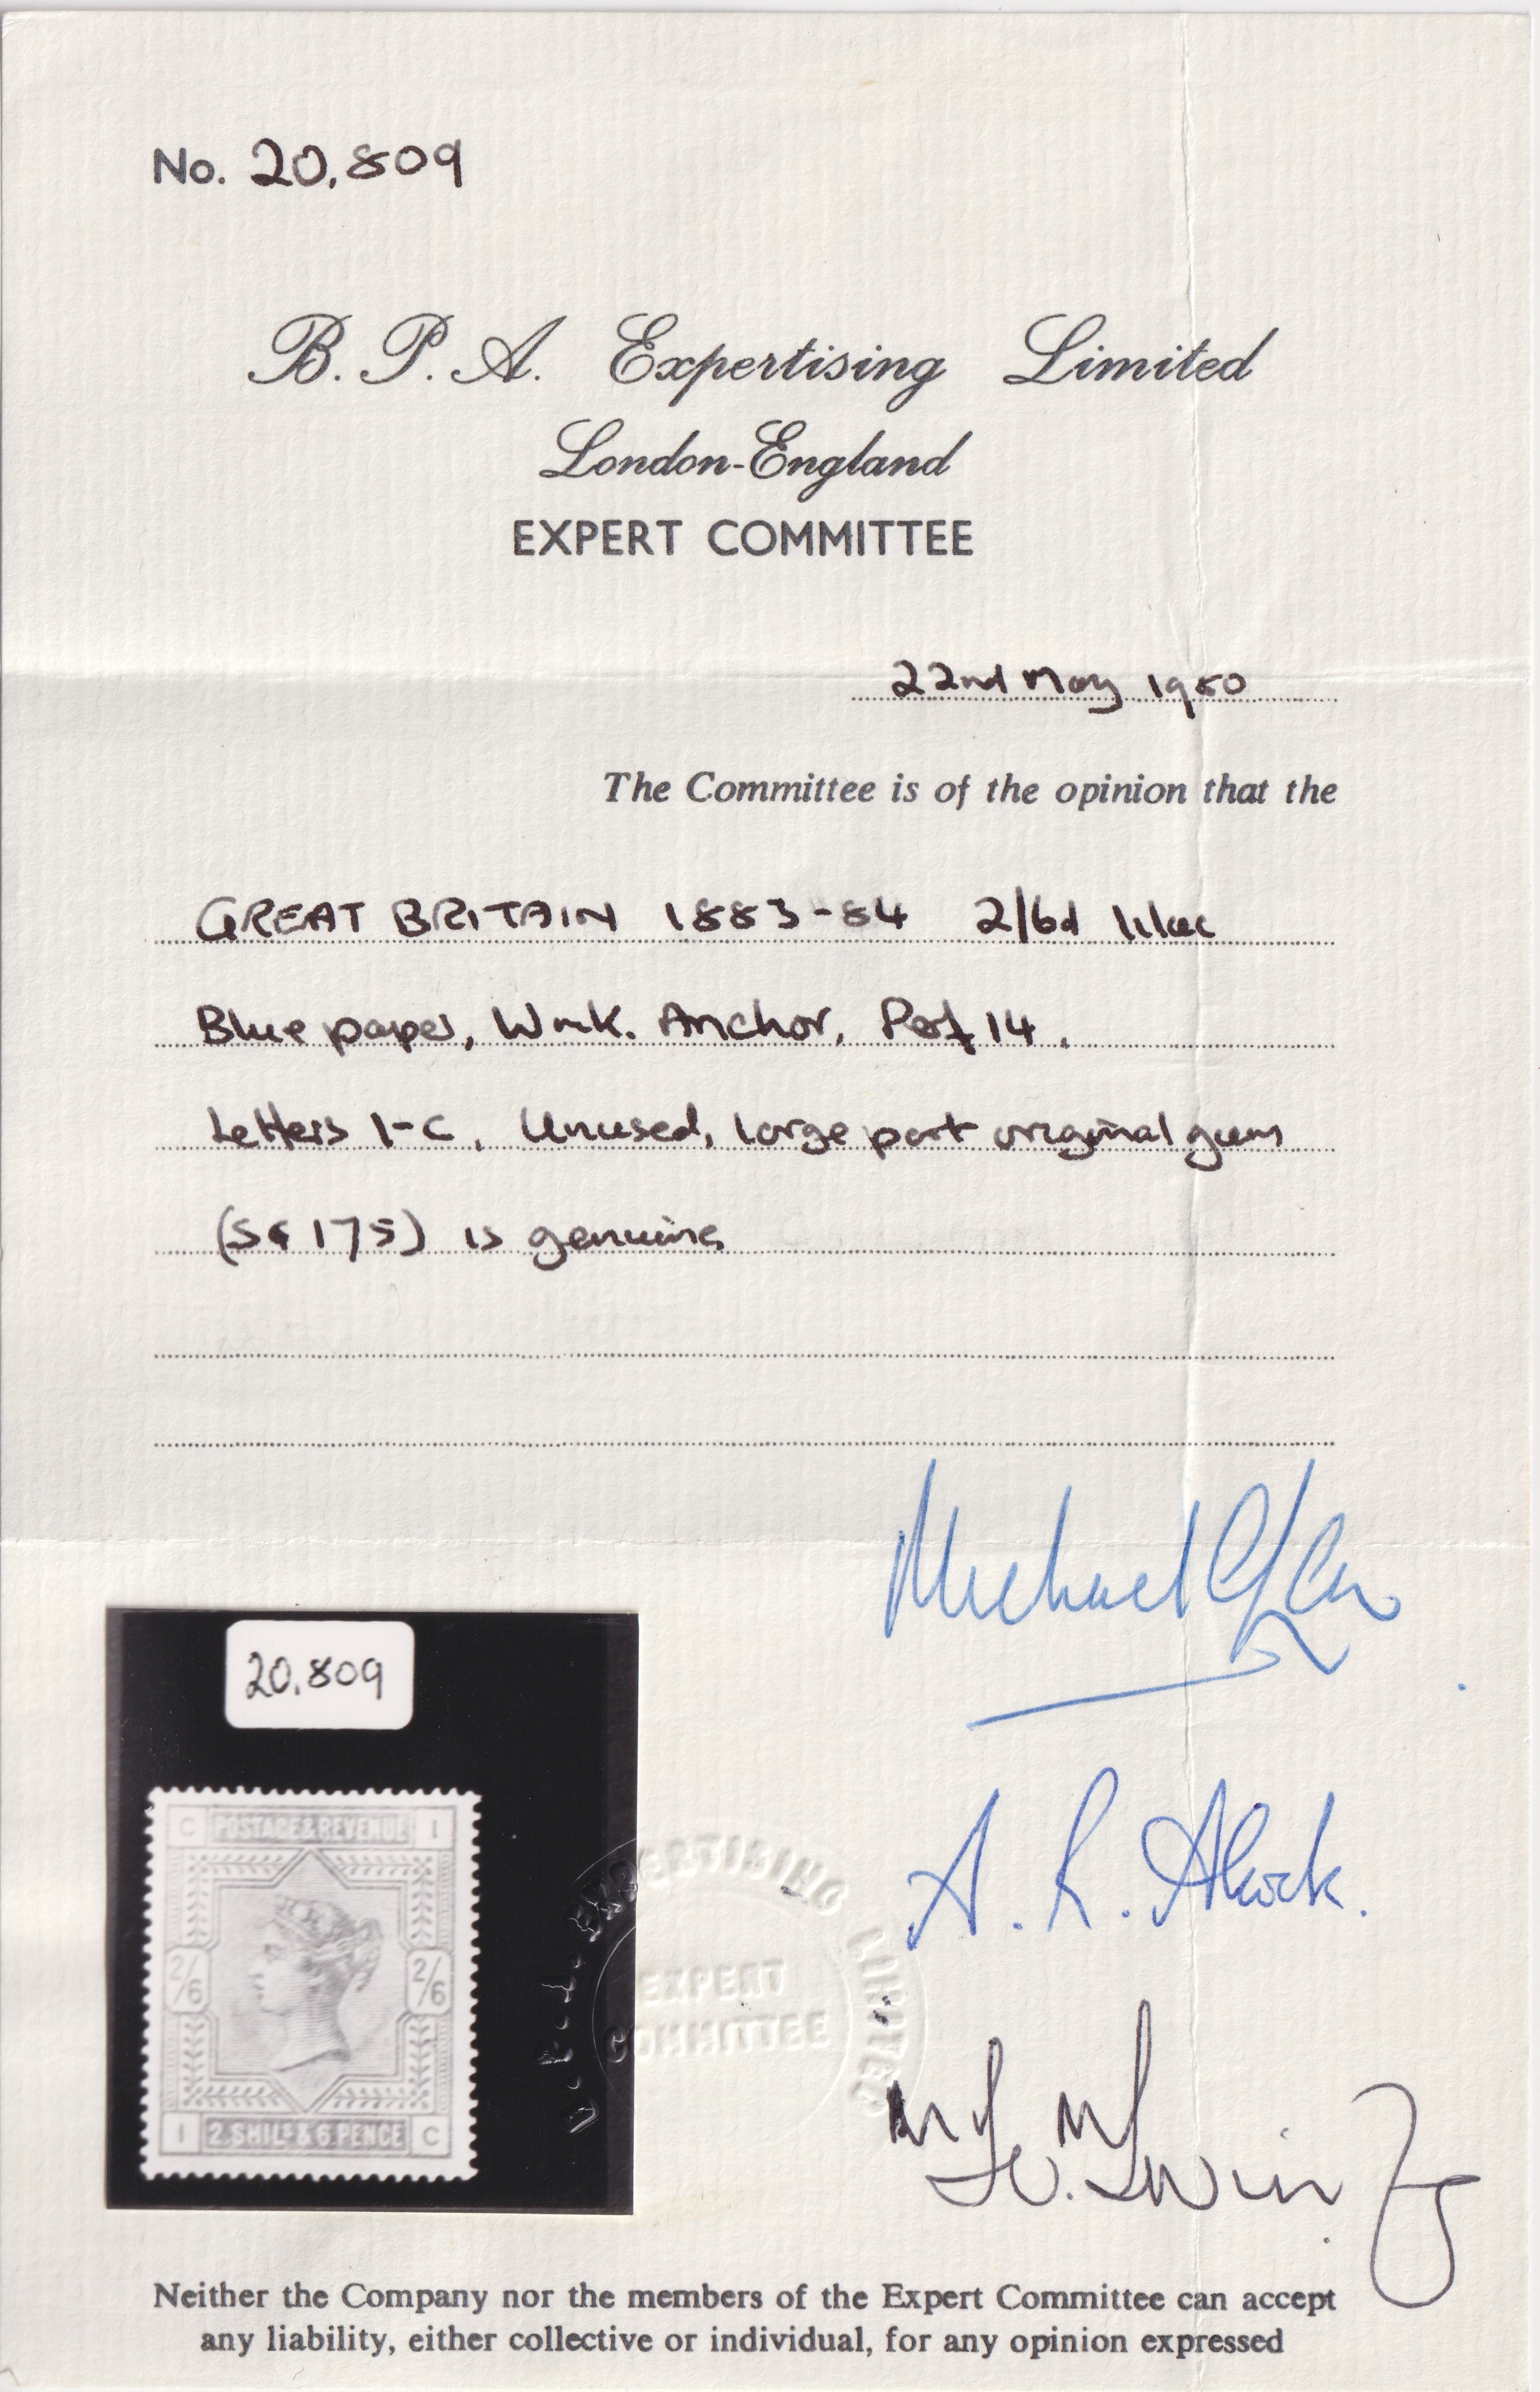 No. 20,809
B. P. A. Expertising Limited
London-England
EXPERT COMMITTEE
22nd May 1980
The Committee is of the opinion that the
GREAT BRITAIN 1883-84 2/6d lilac
Blue paper, Wmk. Anchor, Perf 14.
Letters I-C, Unused, large part original gum
(SG 175) is genuine
Michael
20,809
A. R. Alcock.
C POSTAGE & REVENUE I
2/6 2/6
I 2 SHILS & 6 PENCE C
B.P.A. EXPERTISING LIMITED
EXPERT
COMMITTEE
Neither the Company nor the members of the Expert Committee can accept
any liability, either collective or individual, for any opinion expressed